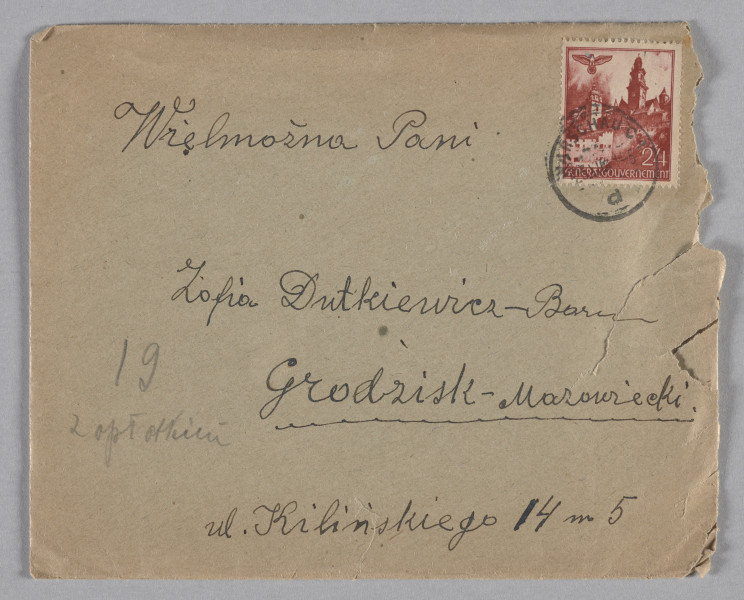 24
GENERALGOUVERNEMENT
Wielmożna Pani
Zofia Dutkiewicz-
Grodzisk-Mazowiecki.
19
z opłatkiem
ul. Kilińskiego 14 m 5